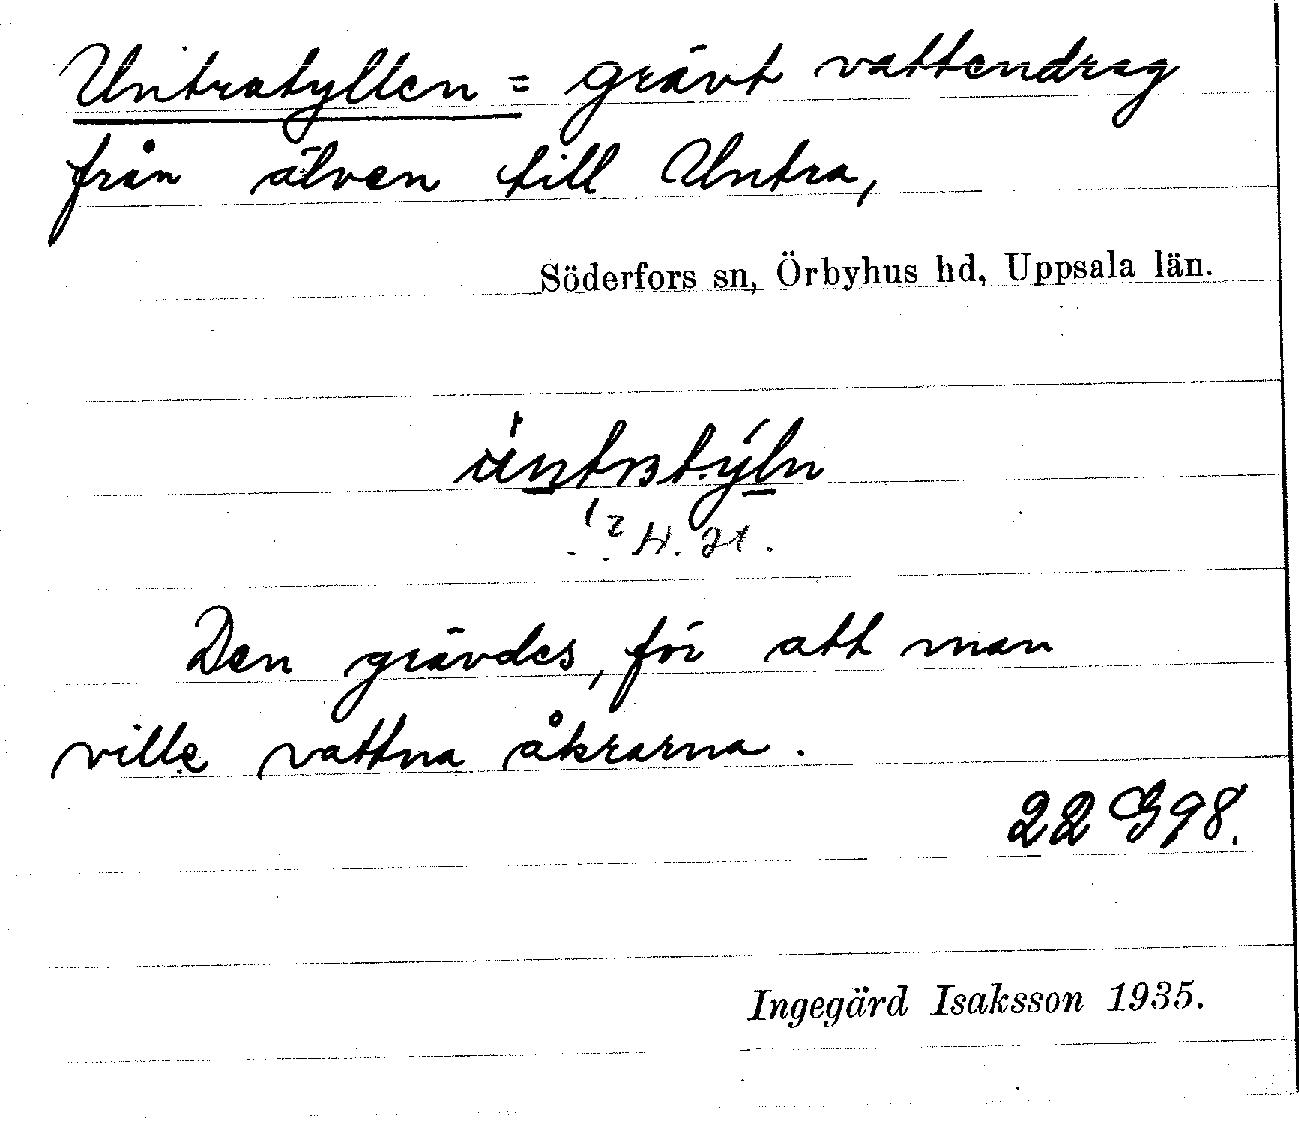 Untratyllen = grävt vattendrag
från älven till Untra,
Söderfors sn, Örbyhus hd, Uppsala län.
Den grävdes, för att man
ville vattna åkrarna.
22 G 98.
Ingegärd Isaksson 1935.